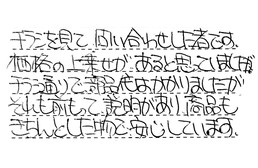 チラシを見て、問い合わせした者です。
価格の上乗せが、あると思っていましたが
チラシ通りで、商品代はかかりましたが
それも前もって、説明があり、商品も
きちんとした物で安心しています。